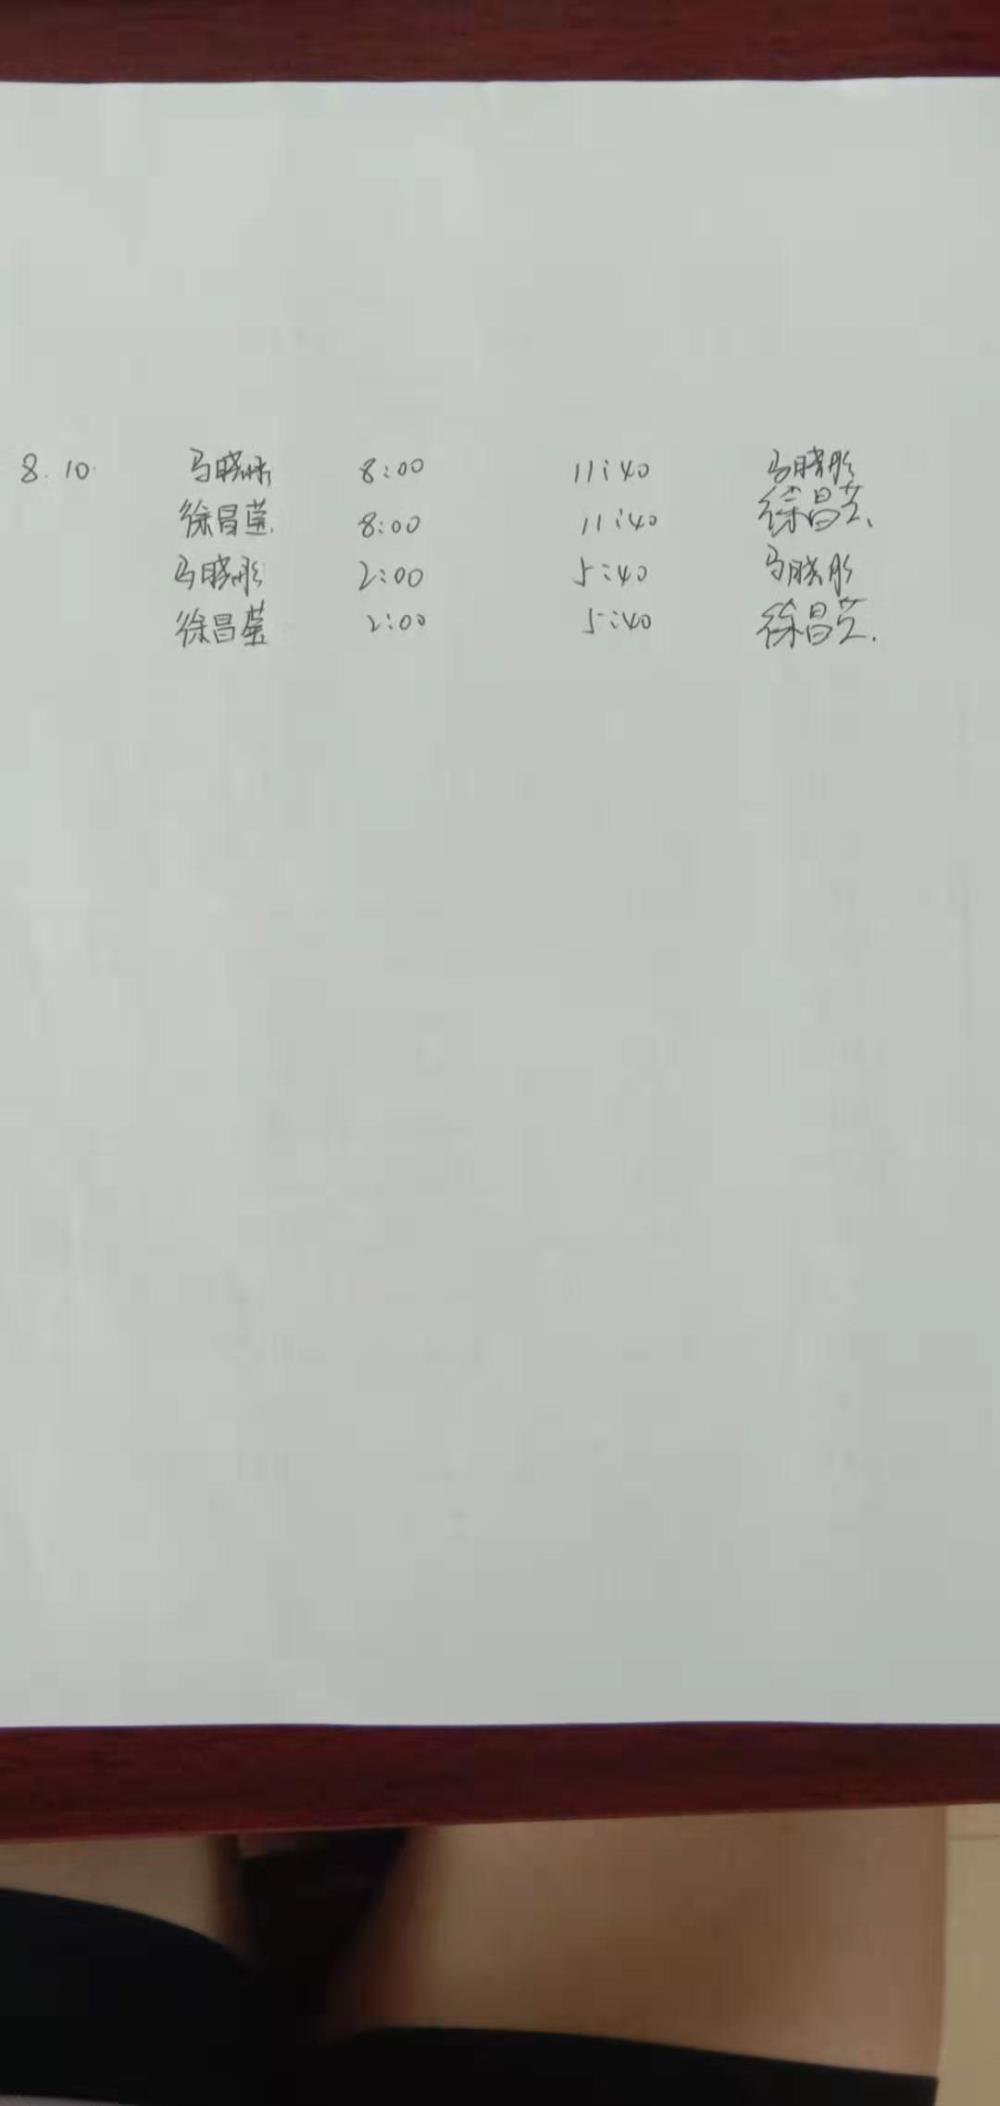 8.10 马晓彤 8:00 11:40 马晓彤
徐昌莲 8:00 11:40 徐昌
马晓彤 2:00 5:40 马晓彤
徐昌莹 2:00 5:40 徐昌